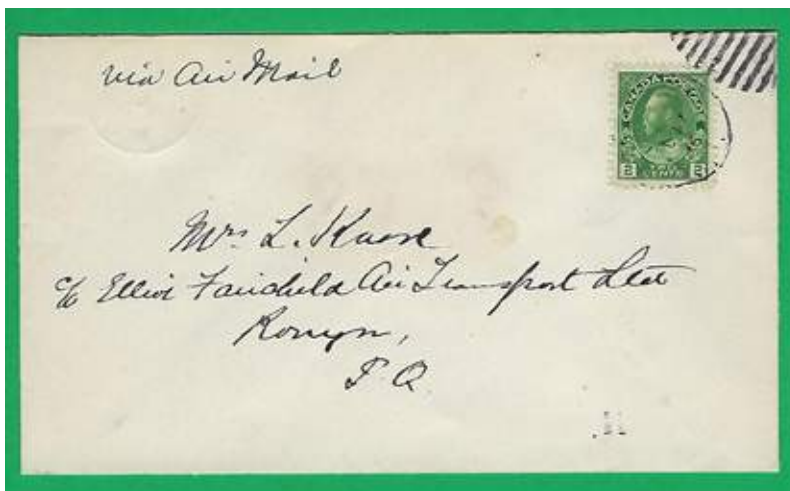 via Air Mail
CANADA POSTAGE
2 TWO CENTS 2
Mrs L.
c/o Elliot Fairchild Air Transport Ltd
Rouyn,
P.Q.